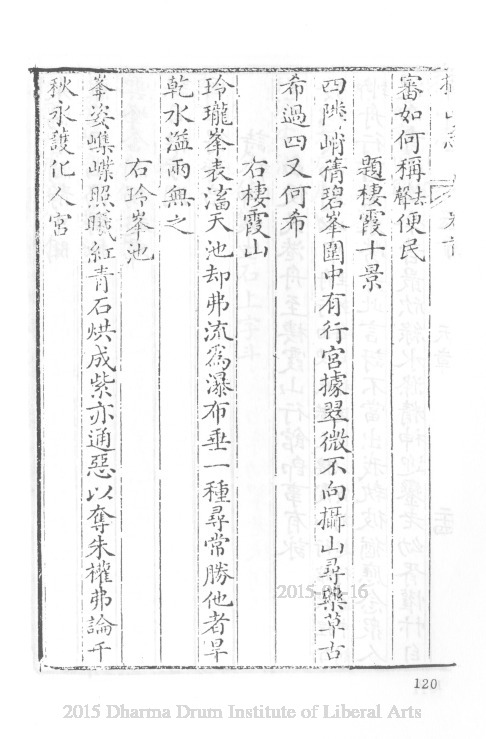 審如何稱去聲便民
題棲霞十景
四陲峭蒨碧峯圍中有行宮據翠微不向攝山尋藥草古
希過四又何希
右棲霞山
玲瓏峯表滀天池却弗流爲瀑布垂一種尋常勝他者旱
乾水溢兩無之
右玲峯池
峯姿㠎嶫照曦紅青石烘成紫亦通惡以奪朱權弗論千
秋永護化人宮
120
2015 Dharma Drum Institute of Liberal Arts